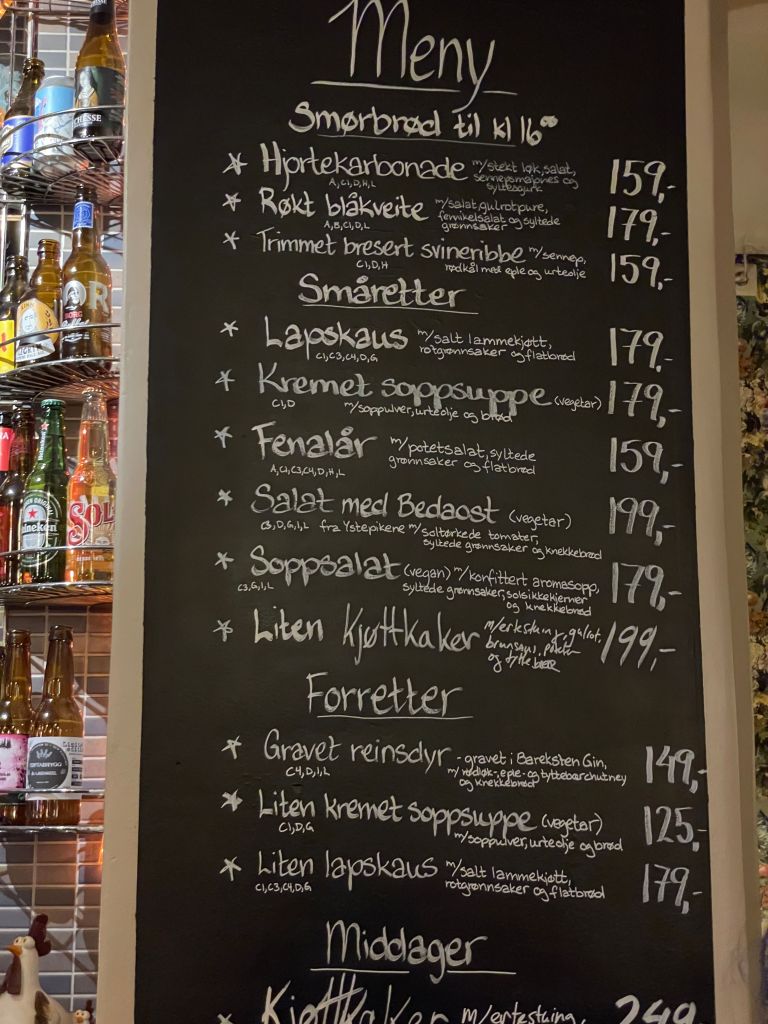 Meny
Smørbrød til kl 16⁰⁰
* Hjortekarbonade m/stekt løk, salat, 159,-
sennepsmajones og
A, C1, D, H, L sylteagurk
* Røkt blåkveite m/salat, gulrotpure, 179,-
fennikelsalat og syltede
A, B, C1, D, L grønnsaker
* Trimmet bresert svineribbe m/sennep, 159,-
C1, D, H rødkål med eple og urteolje
Småretter
* Lapskaus m/salt lammekjøtt, 179.-
C1, C3, C4, D, G rotgrønnsaker og flatbrød
* Kremet soppsuppe (vegetar) 179,-
C1, D m/soppulver, urteolje og brød
* Fenalår m/potetsalat, syltede 159,-
A, C1, C3, C4, D, H, L grønnsaker og flatbrød
* Salat med Bedaost (vegetar) 199,-
C3, D, G, I, L fra Ystepikene m/soltørkede tomater,
syltede grønnsaker og knekkebrød
* Soppsalat (vegan) m/konfittert aromasopp, 179,-
C3, G, I, L syltede grønnsaker, solsikkekjerner
og knekkebrød
* Liten Kjøttkaker m/ertestuing, gulrot, 199,-
brunsaus,
og tyttebær
Forretter
* Gravet reinsdyr - gravet i Bareksten Gin, 149,-
C4, D, I, L m/rødløk-, eple- og tyttebærchutney
og knekkebrød
* Liten kremet soppsuppe (vegetar) 125,-
C1, D, G m/soppulver, urteolje og brød
* Liten lapskaus m/salt lammekjøtt, 179,-
C1, C3, C4, D, G rotgrønnsaker og flatbrød
Middager
* Kjøttkaker m/ertestuing, 249
CHESSE
BORG
Heineken
SOL